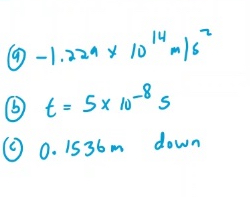 (a) -1.229 x 10¹⁴ m/s²
(b) t = 5 x 10⁻⁸ s
(c) 0.1536m down